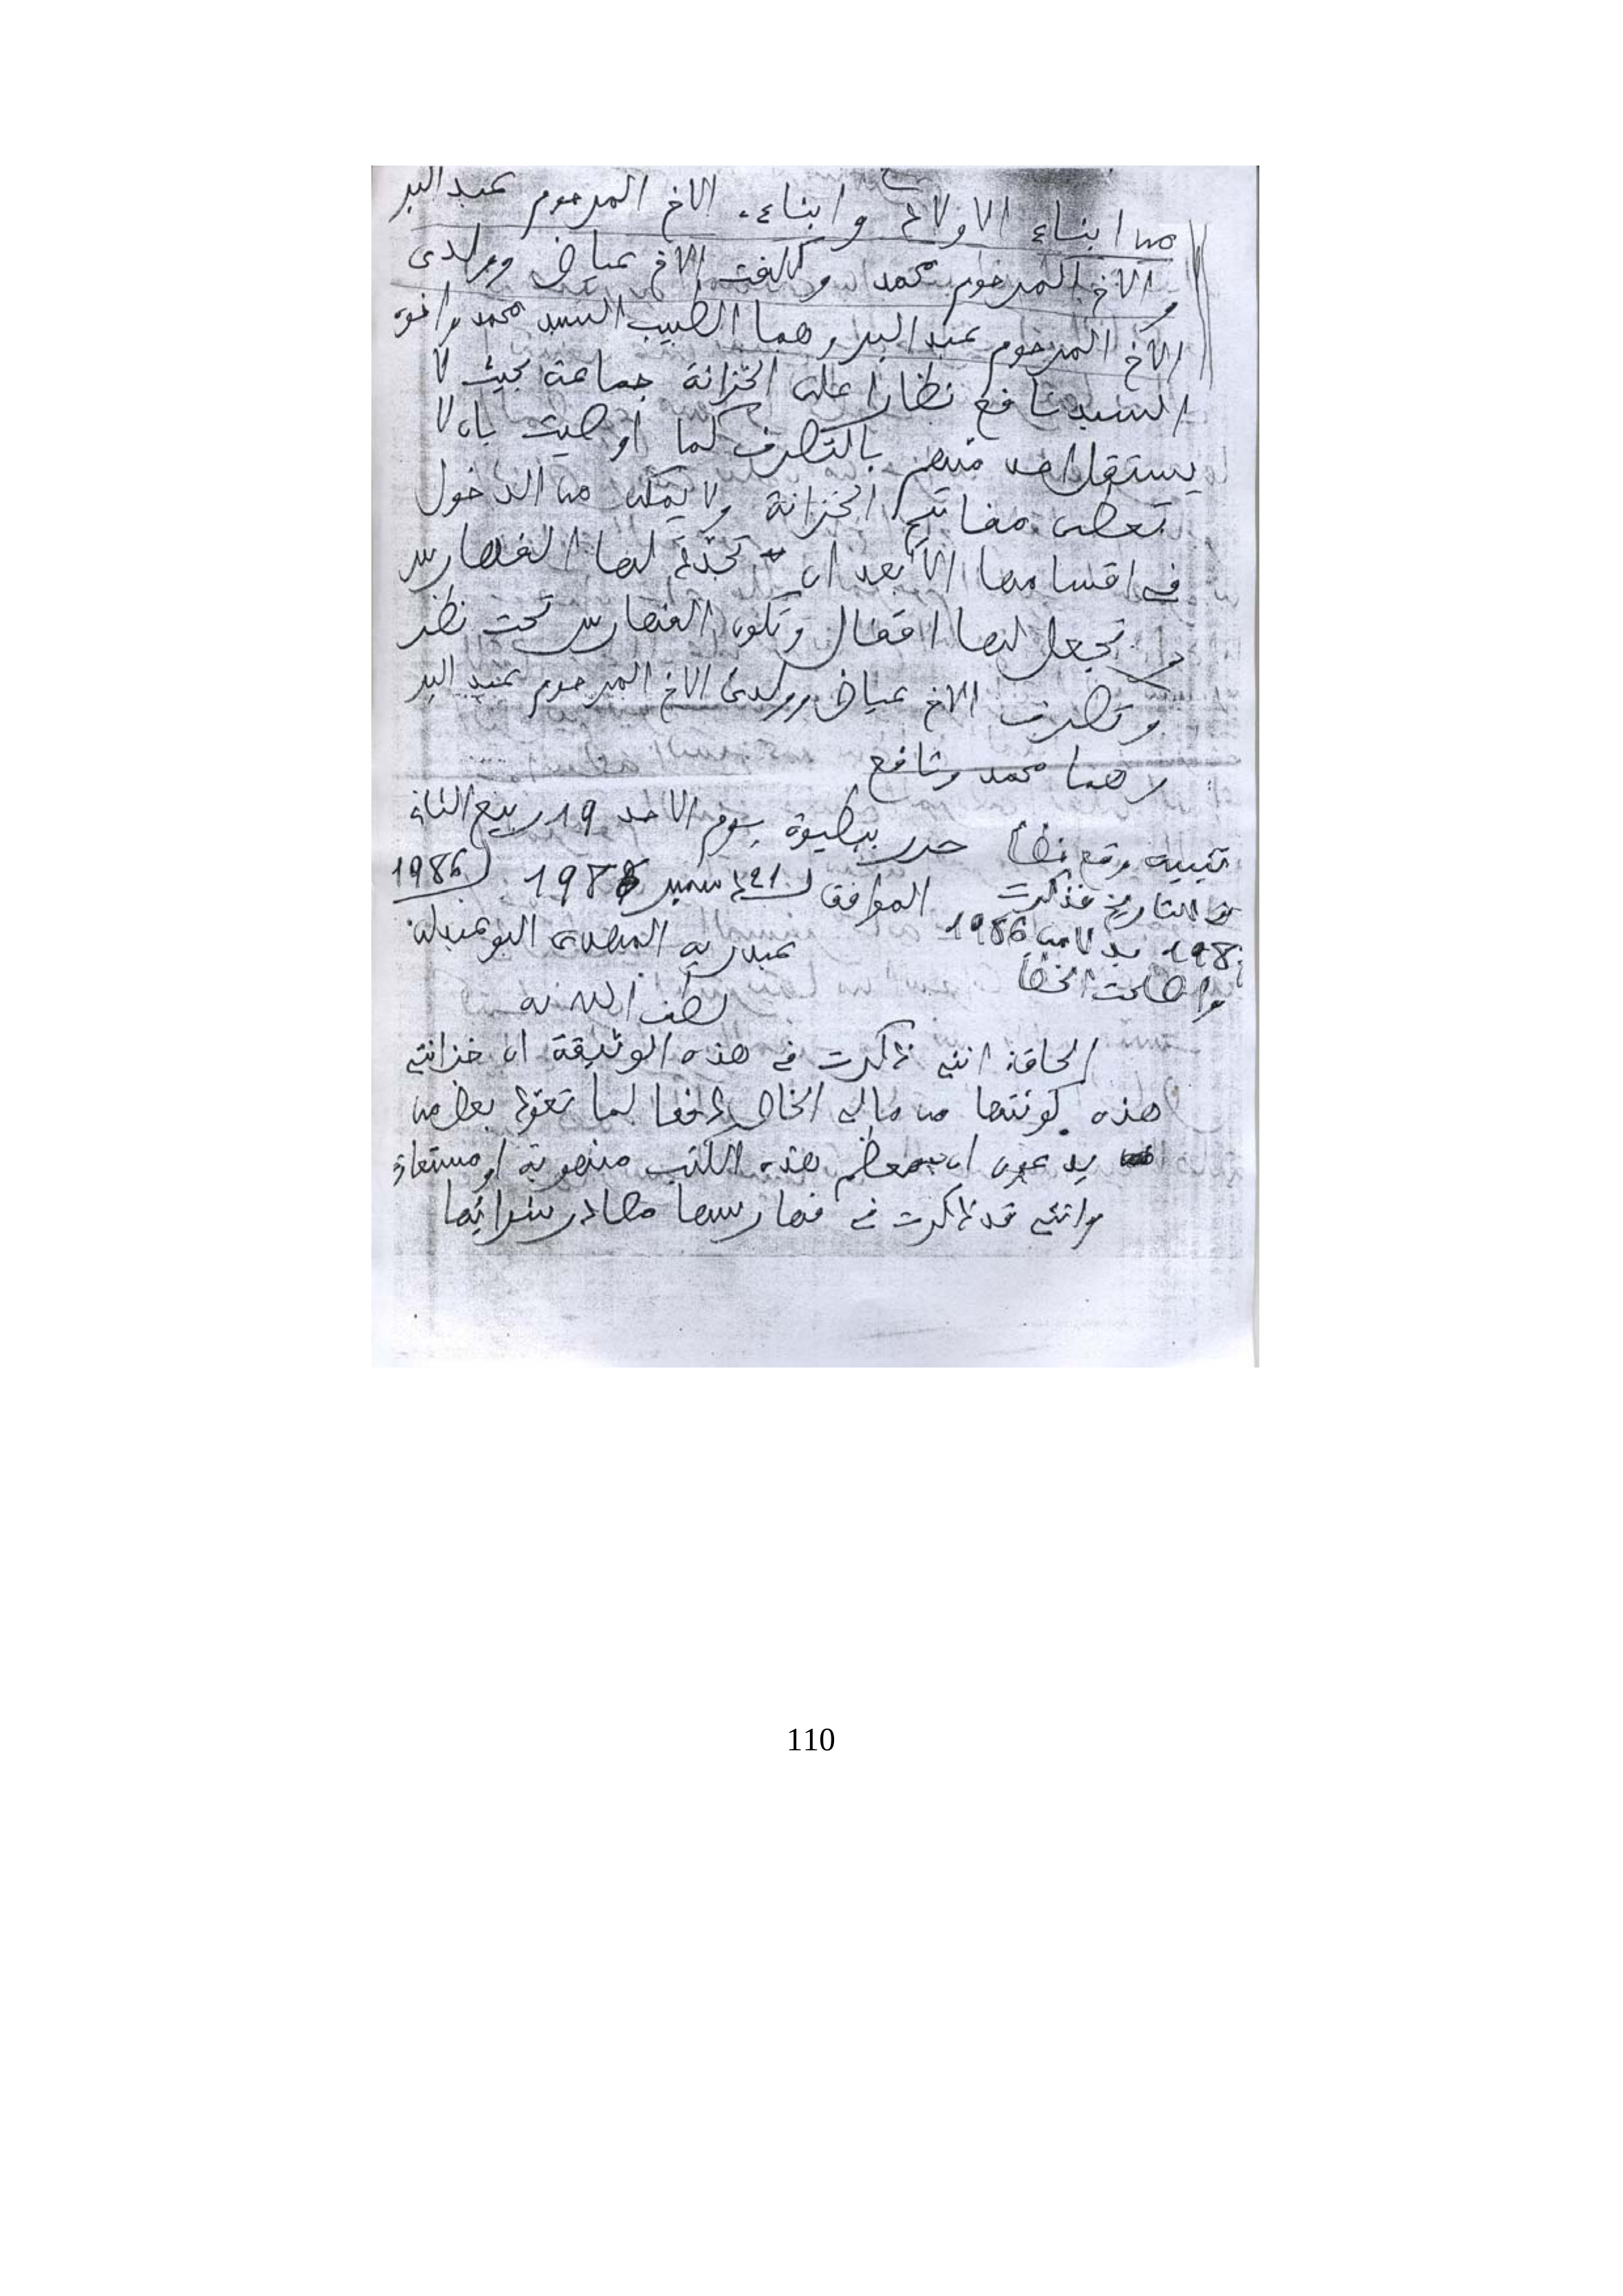 من ابناء الاولاد وابناء الاخ المرحوم عبد البر
والاخ المرحوم محمد وكلفت الاخ عياض وولدى
الاخ المرحوم عبد البر وهما الطبيب السيد محمد واخوه
السيد شافع نظارا على الخزانة جماعة بحيث لا
يستقل احد منهم بالتصرف كما اوصيت بان لا
تعطى مفاتيح الخزانة ولا يمكن من الدخول
في اقسامها الا بعد ان تجدد لها الفهارس
وتجعل لها اقفال وتكون الفهارس تحت نظر
وتصرف الاخ عياض وولدى الاخ المرحوم عبد البر
وهما محمد وشافع
حرر ببطيوة يوم الاحد 19 ربيع الثاني
الموافق لـ 21 دسمبر 1986
تنبيه وقع خطأ
في التاريخ فذكرت
198 بدلا من 1986
واصلحت الخطأ
عبد ربه المهدى البوعبدلي
لطف الله به
الحاقة انني ذكرت في هذه الوثيقة ان خزانتي
هذه كونتها من مالي الخاص دفعا لما تعود بعض من
يدعون ان معظم هذه الكتب منهوبة او مستعارة
وانني قد ذكرت في فهارسها مصادر شرائها
110